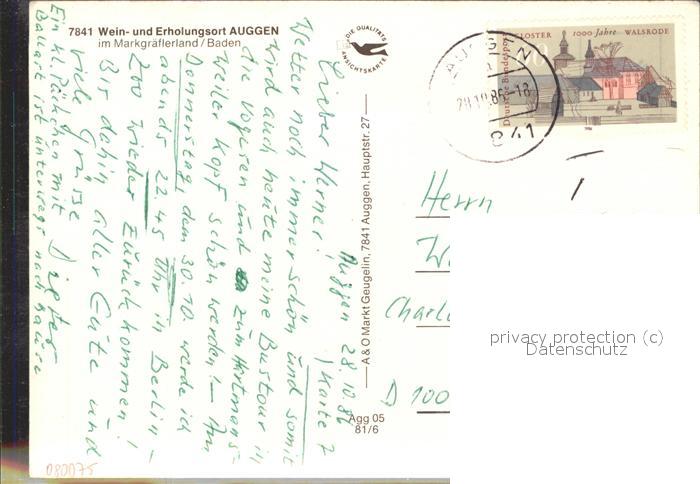 7841 Wein- und Erholungsort AUGGEN
im Markgräflerland / Baden
DIE QUALITÄTS
ANSICHTSKARTE
Auggen 28.10.86
Lieber Werner! (Karte 2
Wetter noch immer schön und somit
wird auch heute meine Bustour in
die Vogesen und zum Hartmanns-
weiler Kopf schön werden! – Am
Donnerstag, dem 30.10. werde ich
abends 22.45 Uhr in Berlin-
Zoo wieder zurückkommen!
Bis dahin alles Gute und
viele Grüsse Dieter
Ein kl. Päckchen mit
ist unterwegs nach hause
A & O Markt Geugelin, 7841 Auggen, Hauptstr. 27
Agg 05
81/6
KLOSTER 1000 Jahre WALSRODE
Deutsche Bundespost
60
1986
AUGGEN
28.10.86-18
7841
Herrn
W
Charl
D 100
privacy protection (c)
Datenschutz
080075